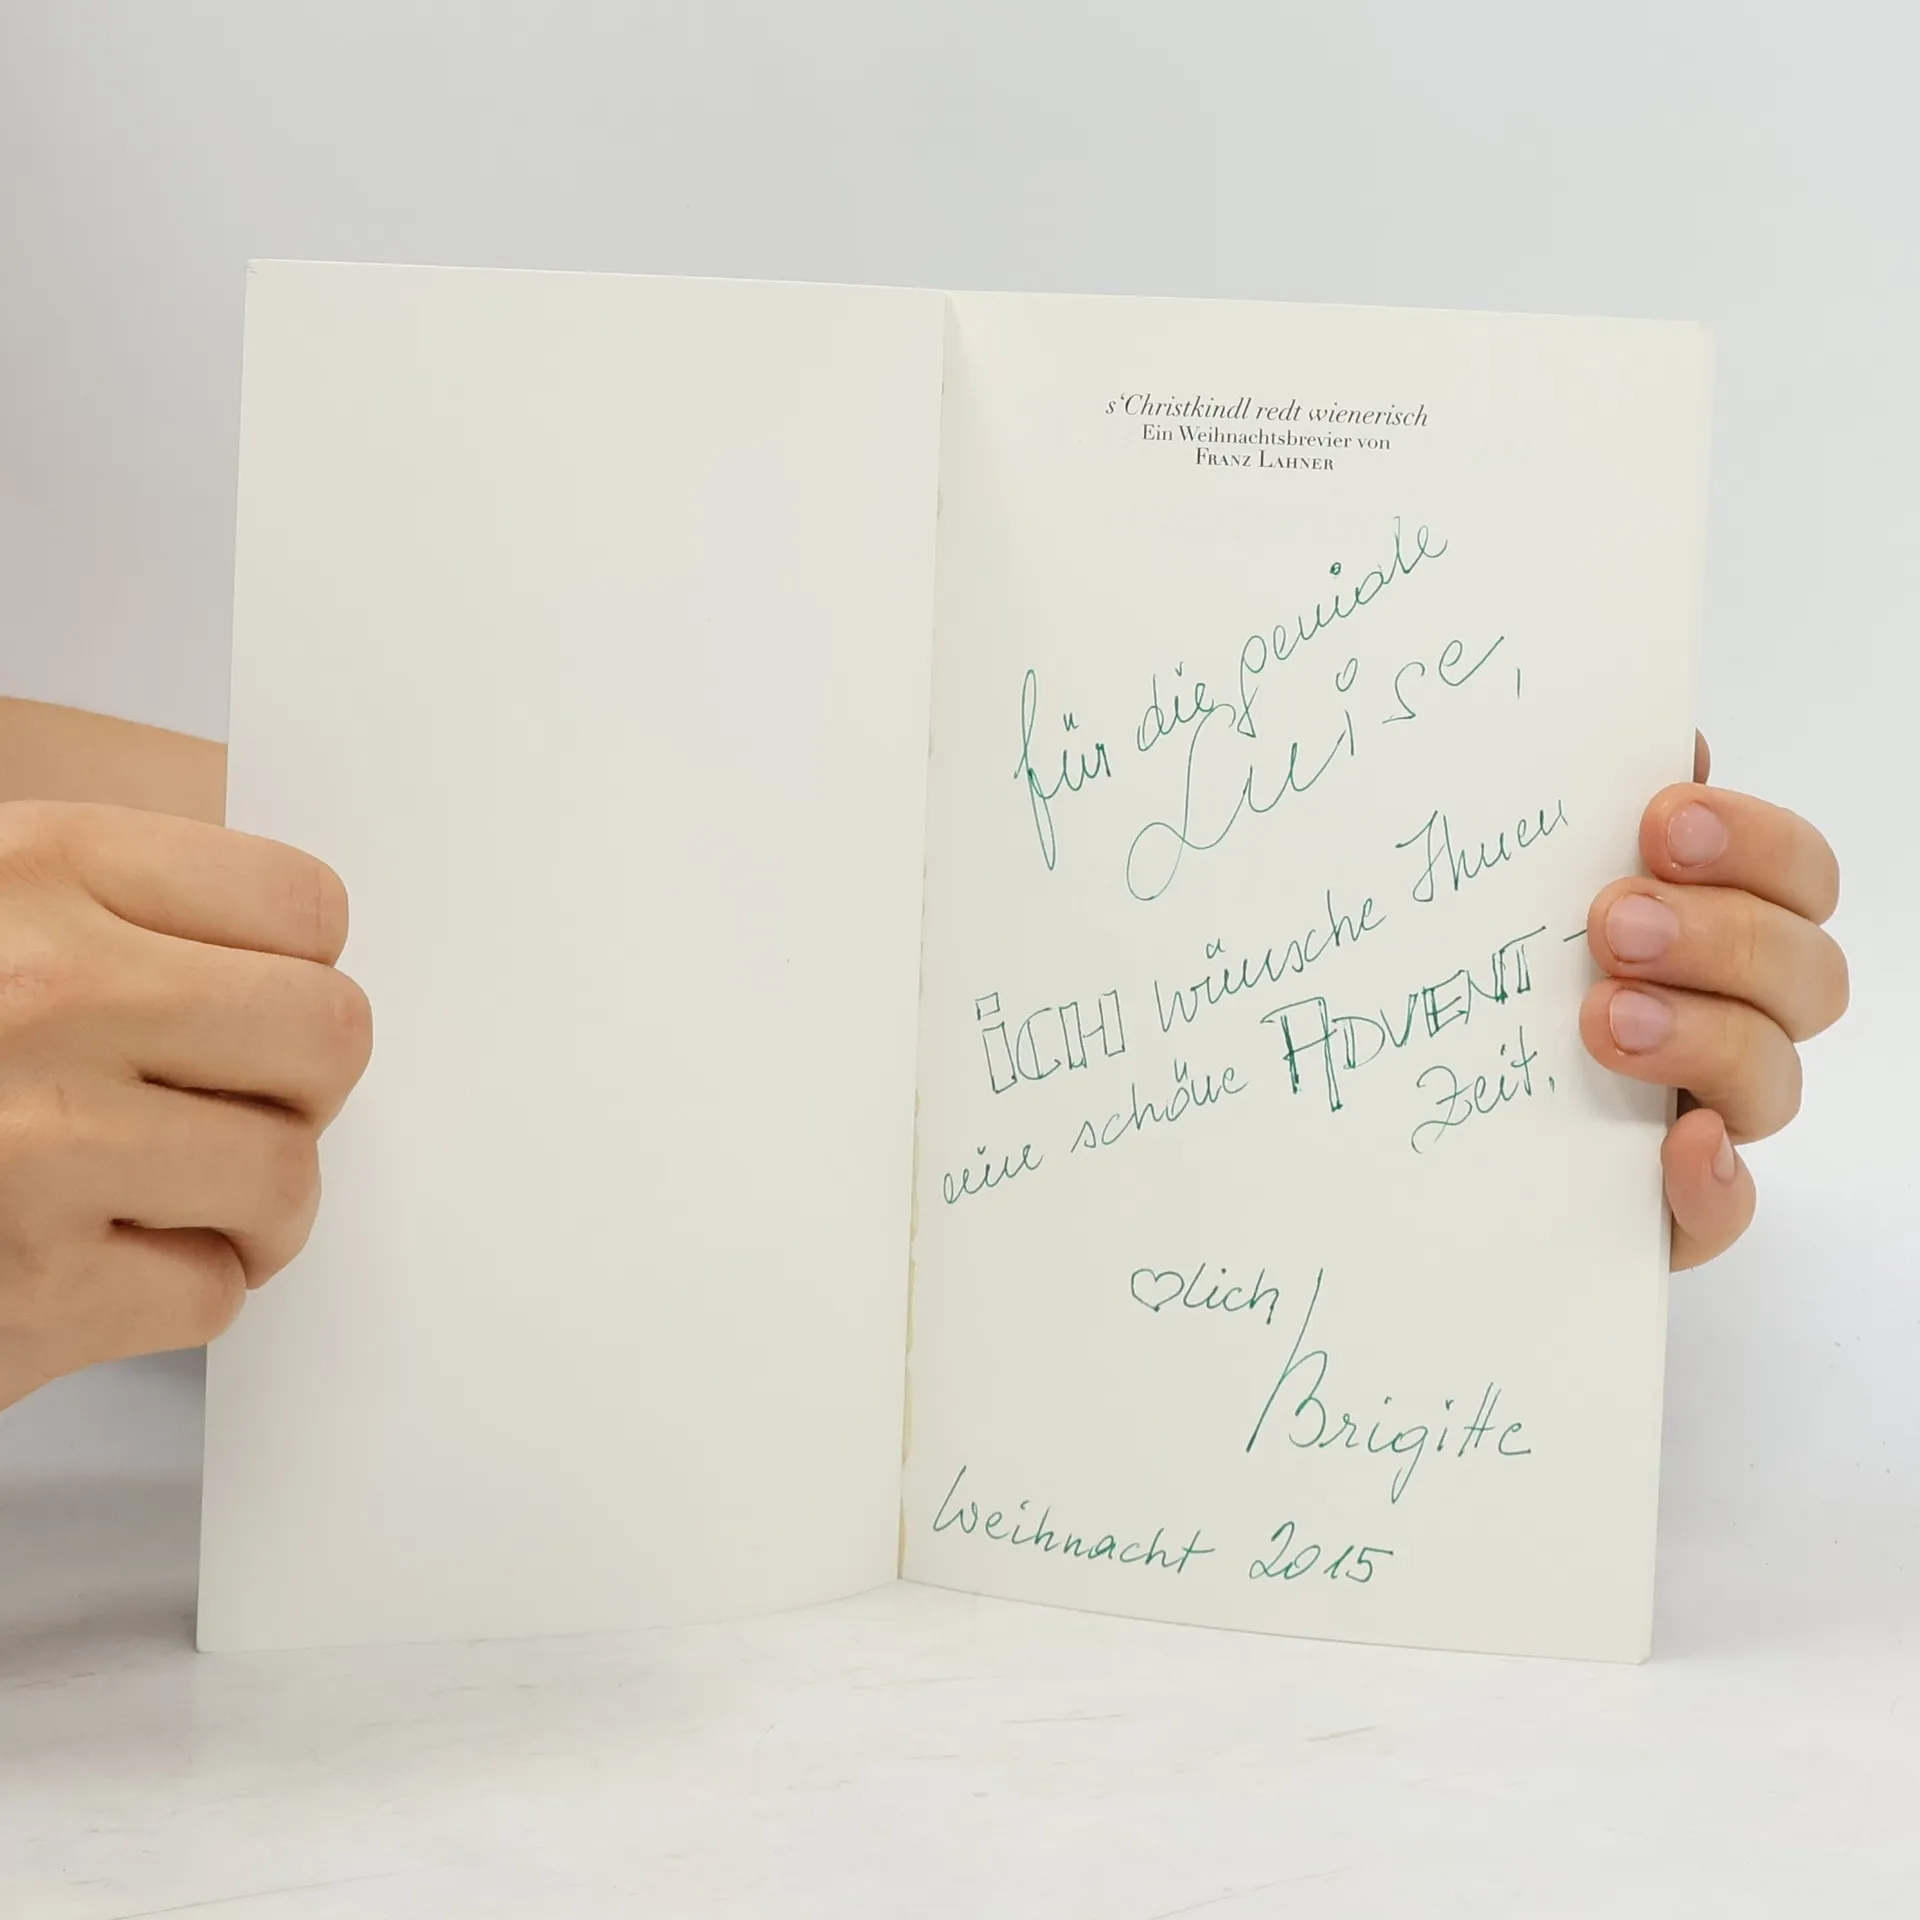 s‘Christkindl redt wienerisch
Ein Weihnachtsbrevier von
FRANZ LAHNER
für die geniale
Luise,
ICH wünsche Ihnen
eine schöne ADVENT-
Zeit.
♡lich
Brigitte
Weihnacht 2015